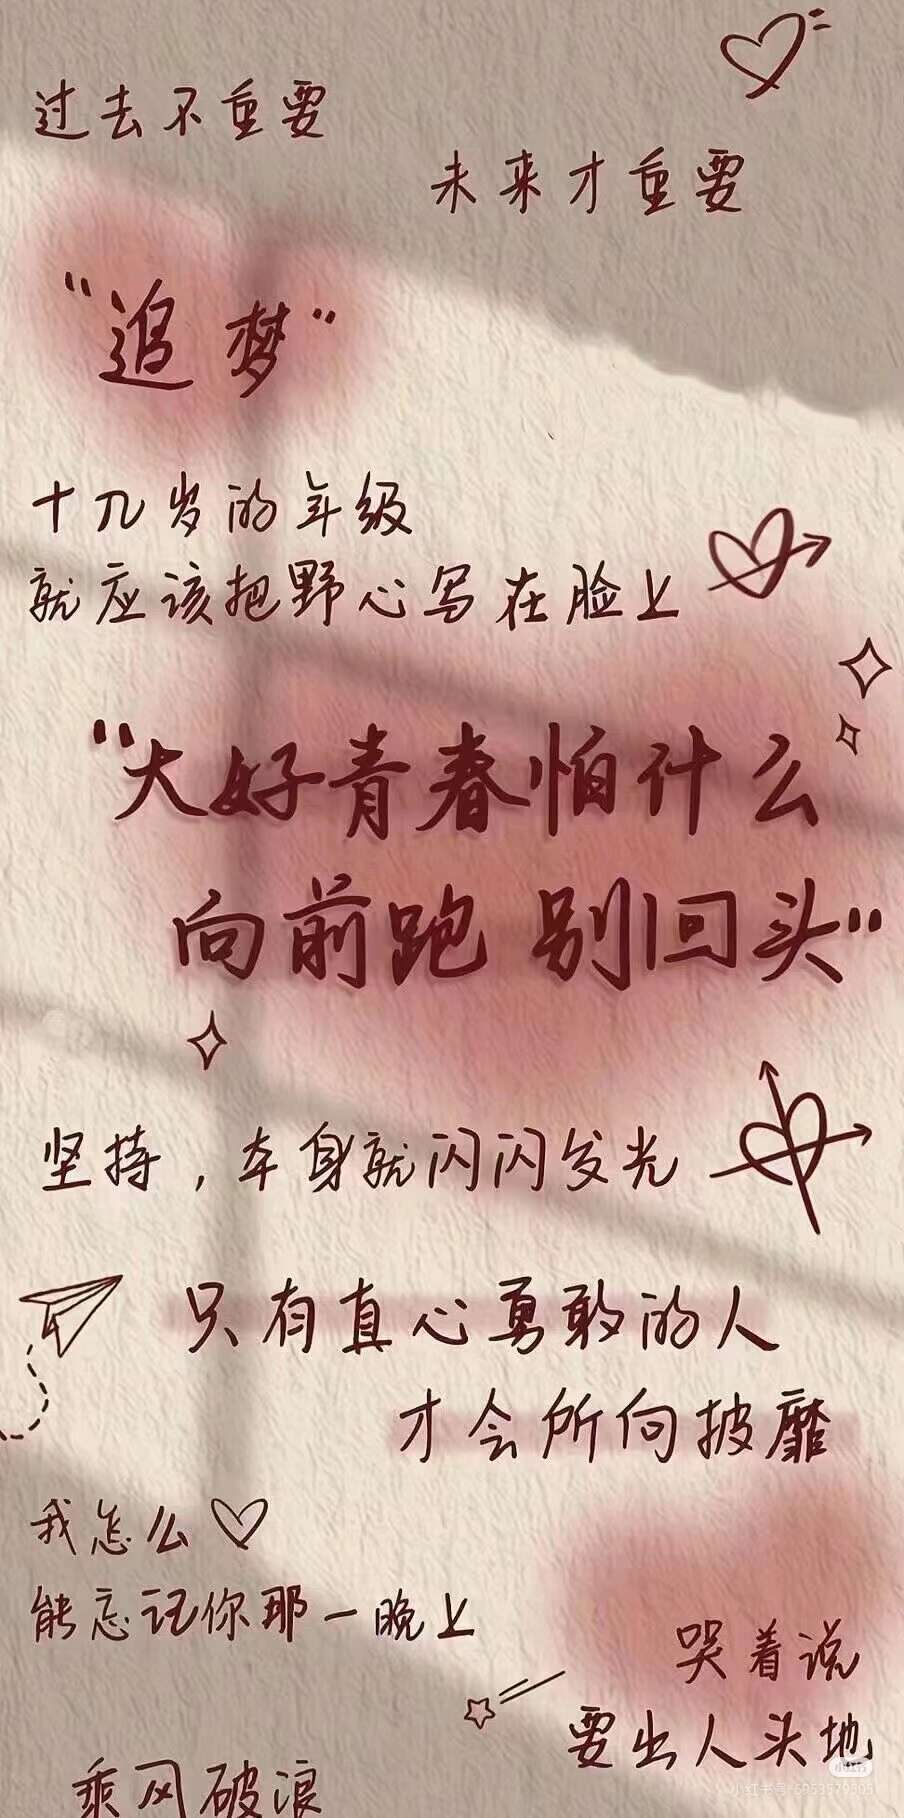 过去不重要
未来才重要
"追梦"
十几岁的年级
就应该把野心写在脸上
"大好青春怕什么
向前跑 别回头"
坚持，本身就闪闪发光
只有真心勇敢的人
才会所向披靡
我怎么
能忘记你那一晚上
哭着说
要出人头地
乘风破浪
小红书